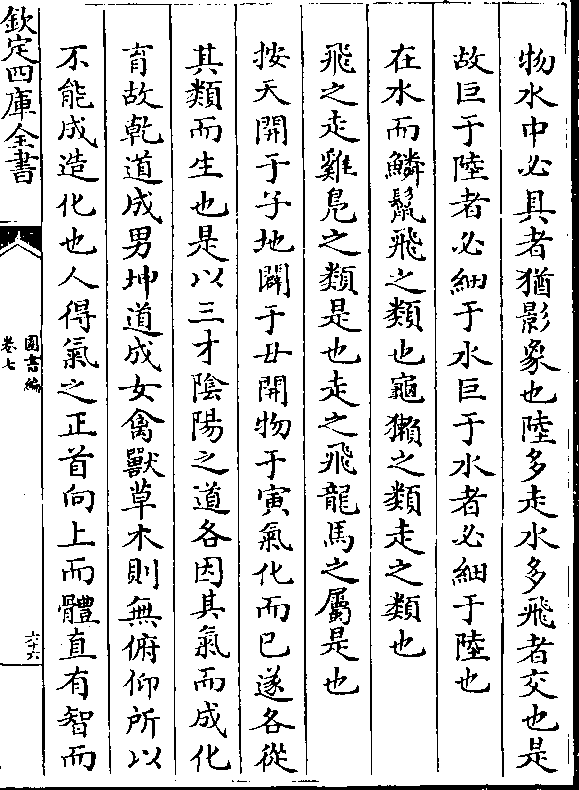 物水中必具者猶影象也陸多走水多飛者交也是
故巨于陸者必細于水巨于水者必細于陸也
在水而鱗鬛飛之類也龜獺之類走之類也
飛之走雞鳧之類是也走之飛龍馬之屬是也
按天開于子地闢于丑開物于寅氣化而已遂各從
其類而生也是以三才陰陽之道各因其氣而成化
育故乾道成男坤道成女禽獸草木則無俯仰所以
不能成造化也人得氣之正首向上而體直有智而
欽定四庫全書
圖書編
卷七
六十六